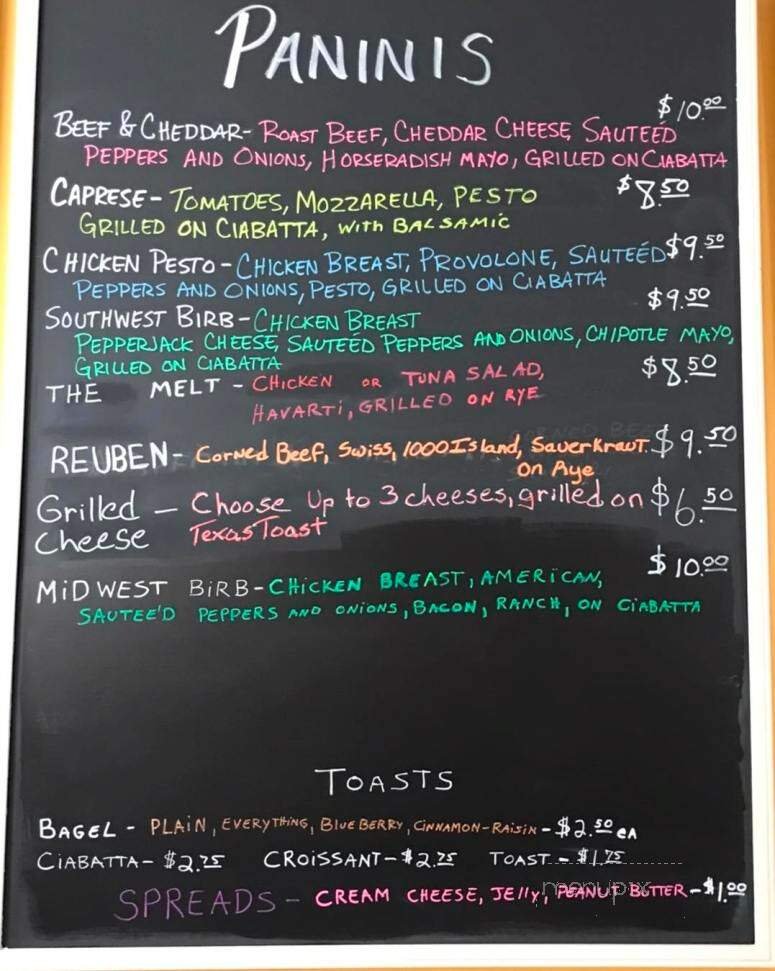 PANINIS
$10.00
BEEF & CHEDDAR- ROAST BEEF, CHEDDAR CHEESE, SAUTEÉD
PEPPERS AND ONIONS, HORSERADISH MAYO, GRILLED ON CIABATTA
CAPRESE - TOMATOES, MOZZARELLA, PESTO $8.50
GRILLED ON CIABATTA, with BALSAMIC
CHICKEN PESTO - CHICKEN BREAST, PROVOLONE, SAUTEÉD $9.50
PEPPERS AND ONIONS, PESTO, GRILLED ON CIABATTA
$9.50
SOUTHWEST BIRB - CHICKEN BREAST
PEPPERJACK CHEESE, SAUTEED PEPPERS AND ONIONS, CHIPOTLE MAYO,
GRILLED ON CIABATTA
$8.50
THE MELT - CHICKEN OR TUNA SALAD,
HAVARTI, GRILLED ON RYE
REUBEN- Corned Beef, Swiss, 1000 Island, Sauerkraut. $9.50
on Aye
Grilled - Choose Up to 3 cheeses, grilled on $6.50
Cheese Texas Toast
$10.00
MIDWEST BIRB - CHICKEN BREAST, AMERICAN,
SAUTEE'D PEPPERS AND ONIONS, BACON, RANCH, ON CIABATTA
TOASTS
BAGEL - PLAIN, EVERYTHING, BLUEBERRY, CINNAMON-RAISIN - $2.50 EA
CIABATTA - $2.75 CROISSANT - $2.75 TOAST - $1.75
SPREADS - CREAM CHEESE, JElly, PEANUT BUTTER - $1.00
menupix